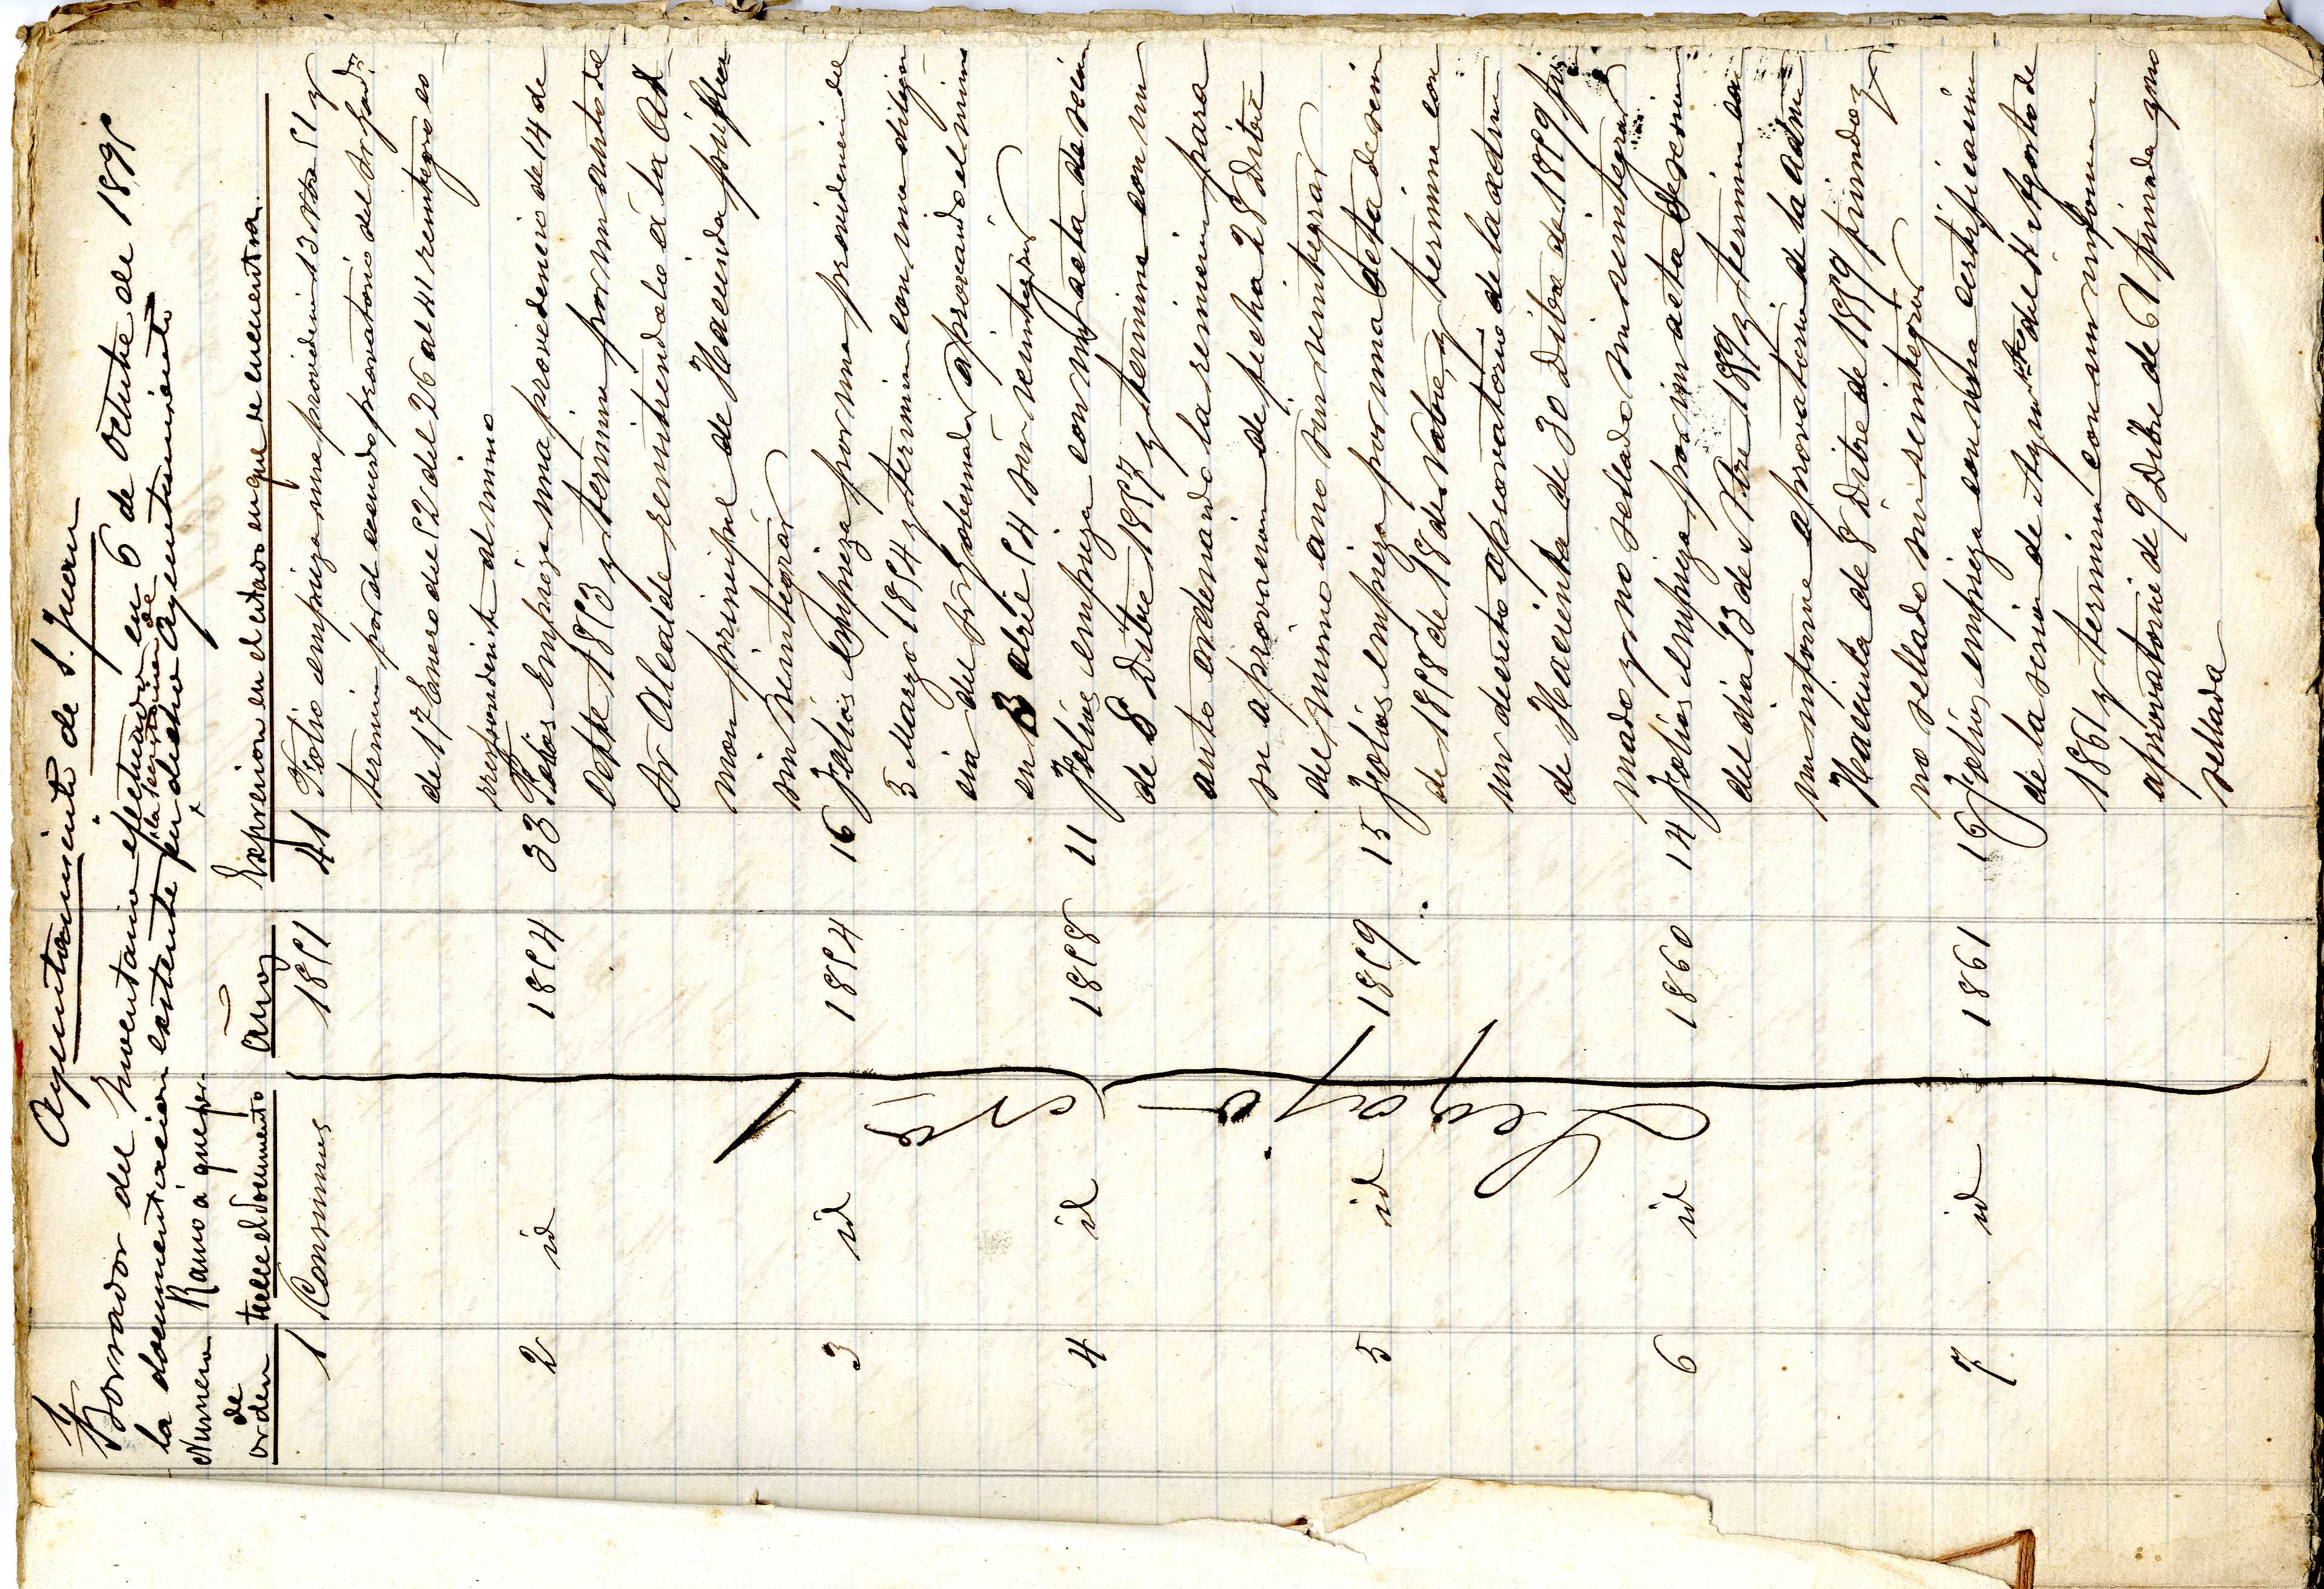 1
Ayuntamiento de S. Juan
Borrador del Inventario efectuado en 6 de Octubre de 1895
la secretaria de
la documentacion existente en dicho Ayuntamiento
Numero Ramo á que per-
de
orden tecce el documento Años Expresion en el estado en que se encuentra.
1 Consumos 1851 41 Folio empieza una providencia 13 Nbre 51 y
termina por el acuerdo provatorio del Sr Godr
de 17 Enero del 52 del 26 al 41 reintegro co
rrespondiente al mimo
2 id 1854 33 Folios Empieza una providencia de 14 de
Octbe 1853 y termina por un auto del
Sr Alcalde remitiendolo á la Ad
mon principal de Hacienda publica
sin reintegrar
3 id 1854 16 Folios empieza por una providencia del
5 Marzo 1854 y termina con una diligen
cia del Sr Gobernador aprovando el mimo
en 3 abril 54 sin reintegrar
4 id 1858 11 Folios empieza con un acta de secion
de 8 Dibre 1857 y termina con un
auto ordenando la remicion para
su aprovacion de fecha 28 Dibre
del mimo año sin reintegrar
5 id 1859 15 Folios empieza por una acta de sesion
de 1858 de 18 de Nobre, y termina con
un decreto aprovatorio de la admon
de Hacienda de 30 Dibre de 1859 fir
mado y no sellado sin reintegrar
6 id 1860 14 Folios empieza por un acta de sesion
del dia 13 de Nbre 1859 y termina con
un informe aprovatorio de la admon
Hacienda de 8 Dibre de 1859 firmado y
no sellado sin reintegrar
7 id 1861 16 Folios empieza con una certificacion
de la sesion de Ayunto del 4 Agosto de
1861 y termina con un informe
aprovatorio de 9 Dibre de 61 firmada y no
sellada
Legajo Nº 1